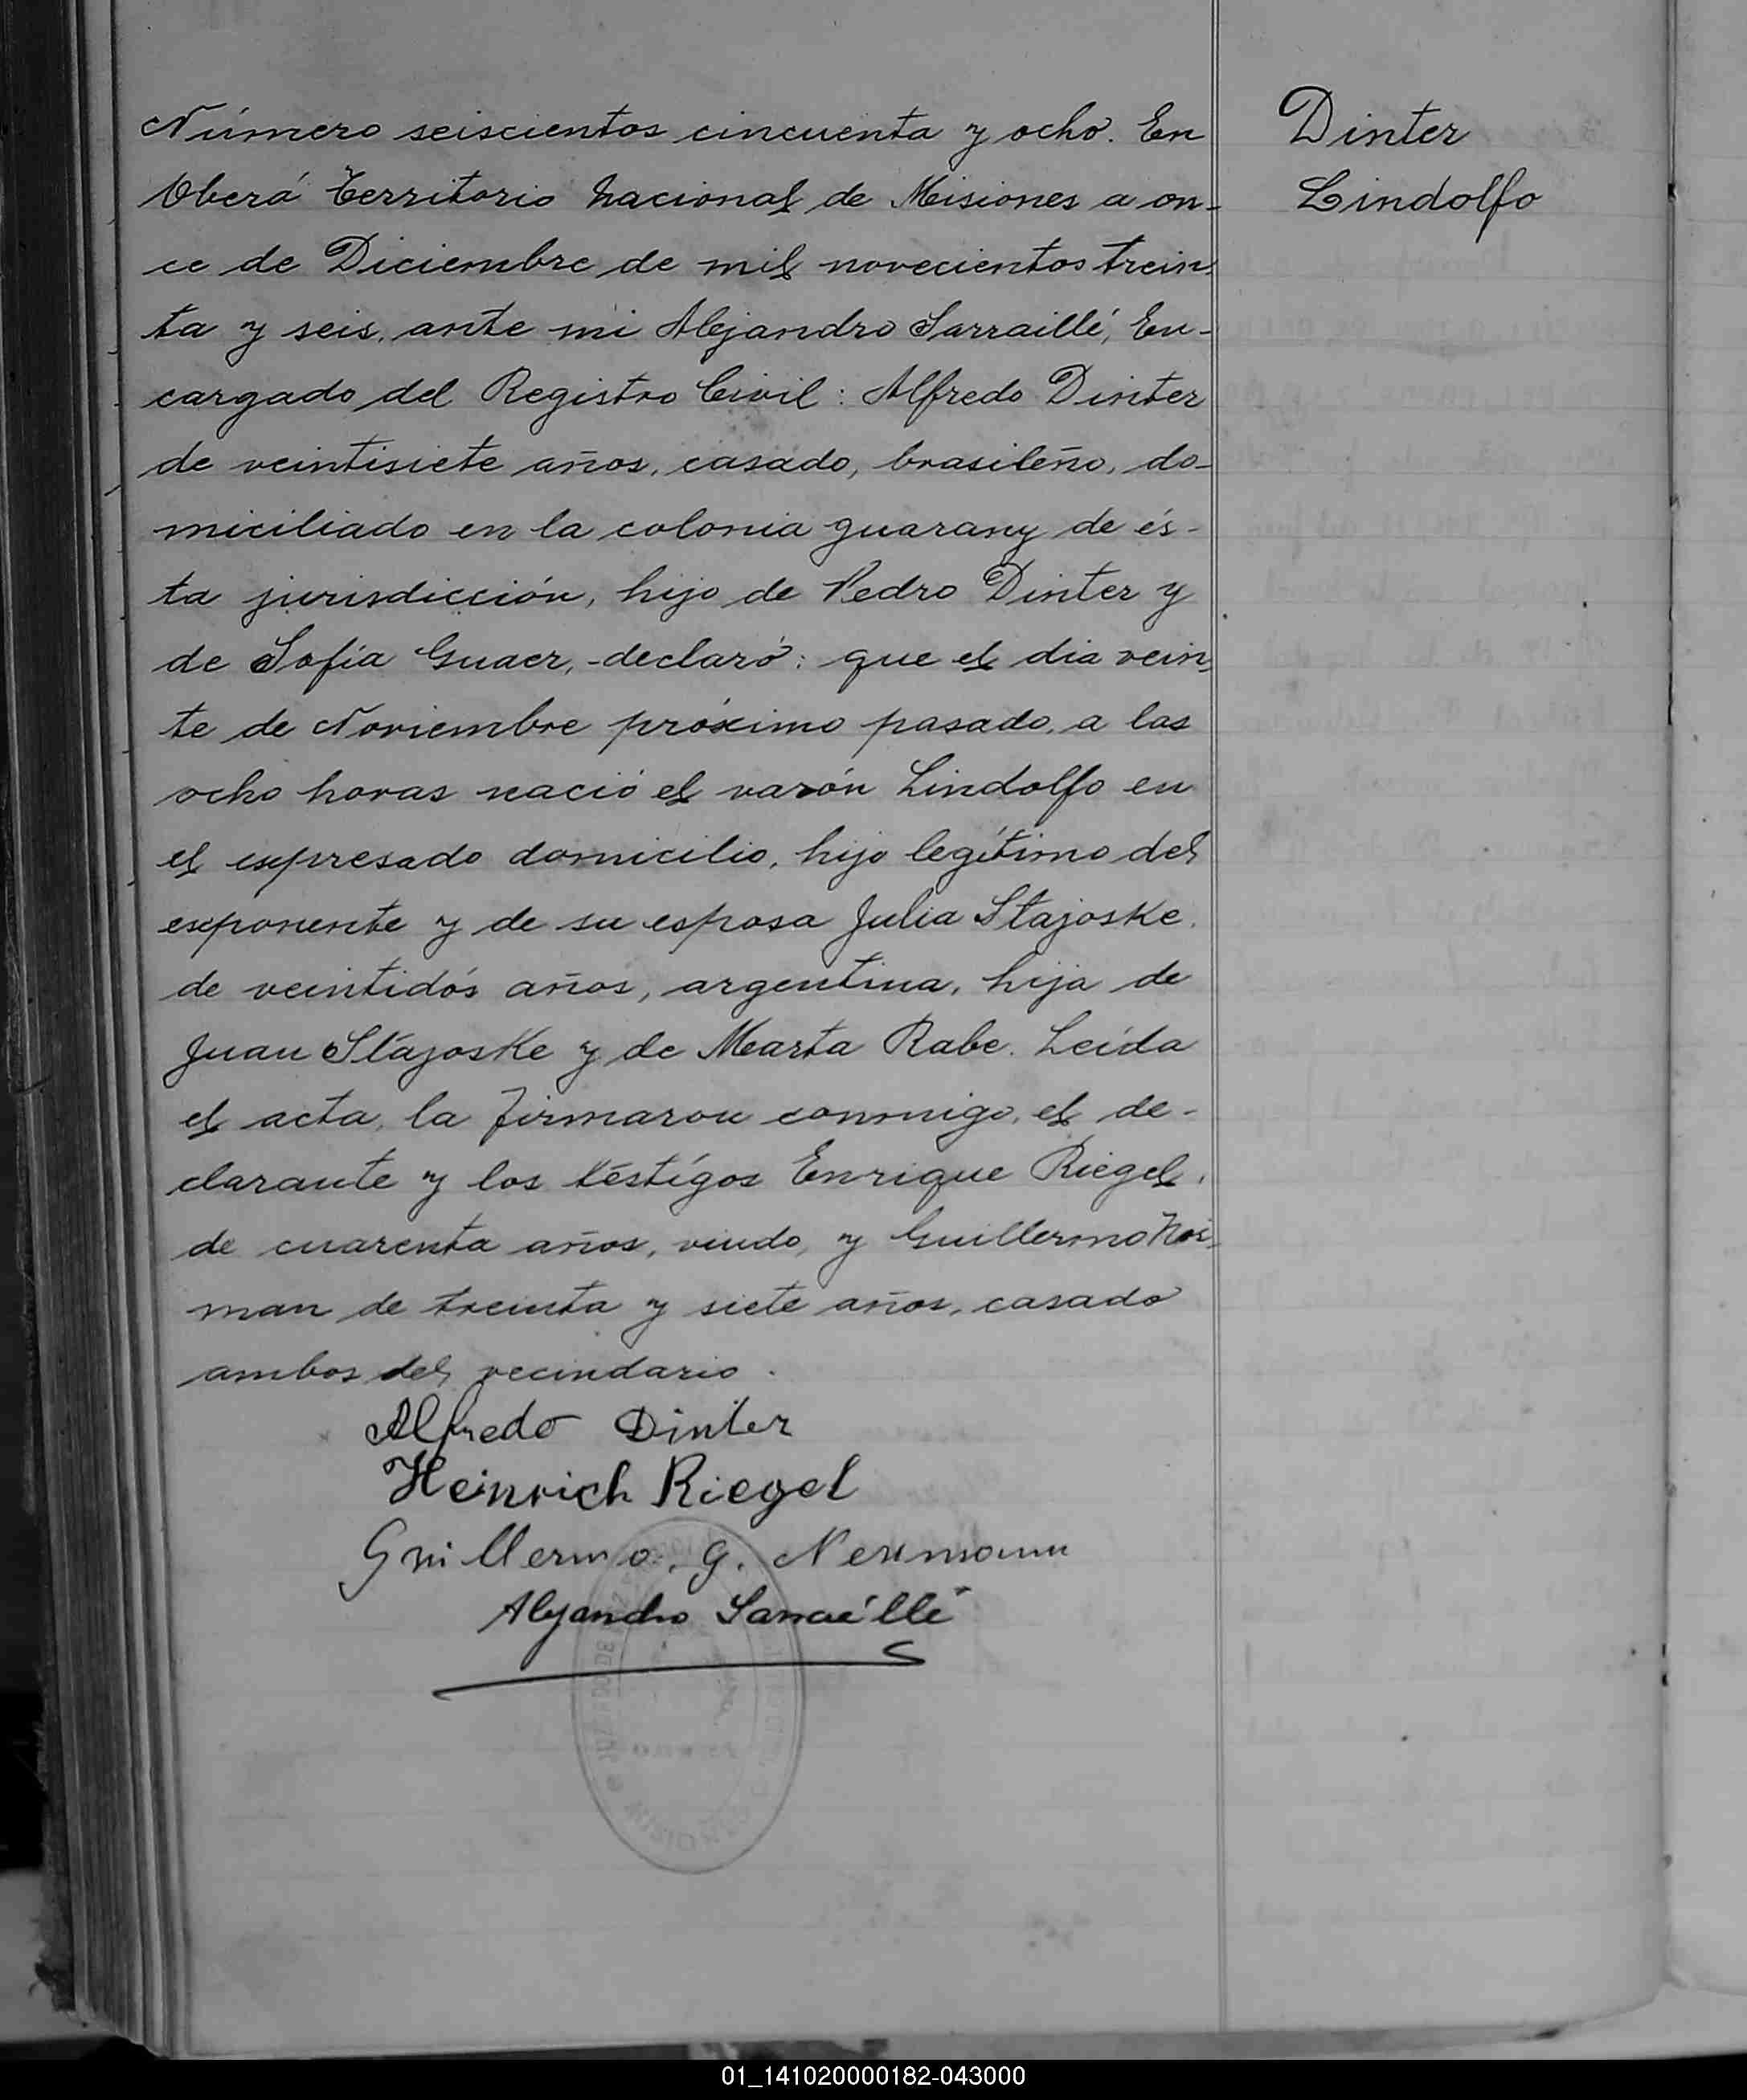 Número seiscientos cincuenta y ocho. En
Oberá Territorio Nacional de Misiones a on-
ce de Diciembre de mil novecientos trein-
ta y seis, ante mi Alejandro Sarraillé, En-
cargado del Registro Civil: Alfredo Dinter
de veintisiete años, casado, brasileño, do-
miciliado en la colonia guarany de és-
ta jurisdicción, hijo de Pedro Dinter y
de Sofía Guaer, -declaró: que el dia vein-
te de Noviembre próximo pasado, a las
ocho horas nació el varón Lindolfo en
el expresado domicilio, hijo legítimo del
exponente y de su esposa Julia Stajoske,
de veintidós años, argentina, hija de
Juan Stajoske y de Marta Rabe. Leída
el acta, la firmaron conmigo, el de-
clarante y los testigos Enrique Riegel,
de cuarenta años, viudo, y Guillermo Noi-
man de treinta y siete años, casado
ambos del vecindario.
Alfredo Dinter
Heinrich Riegel
Guillermo. G. Neumann
Alejandro Sarraillé
Dinter
Lindolfo
01_141020000182-043000